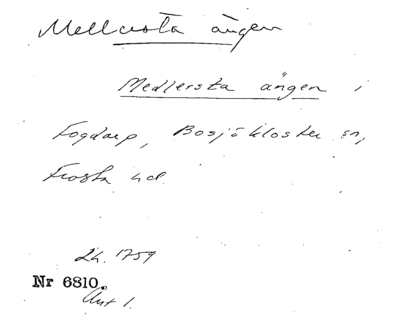 Mellersta ängen
Medlersta ängen i
Fogdarp, Bosjökloster sn,
Frosta hd.
Lh. 1759
Nr 6810.
Akt 1.